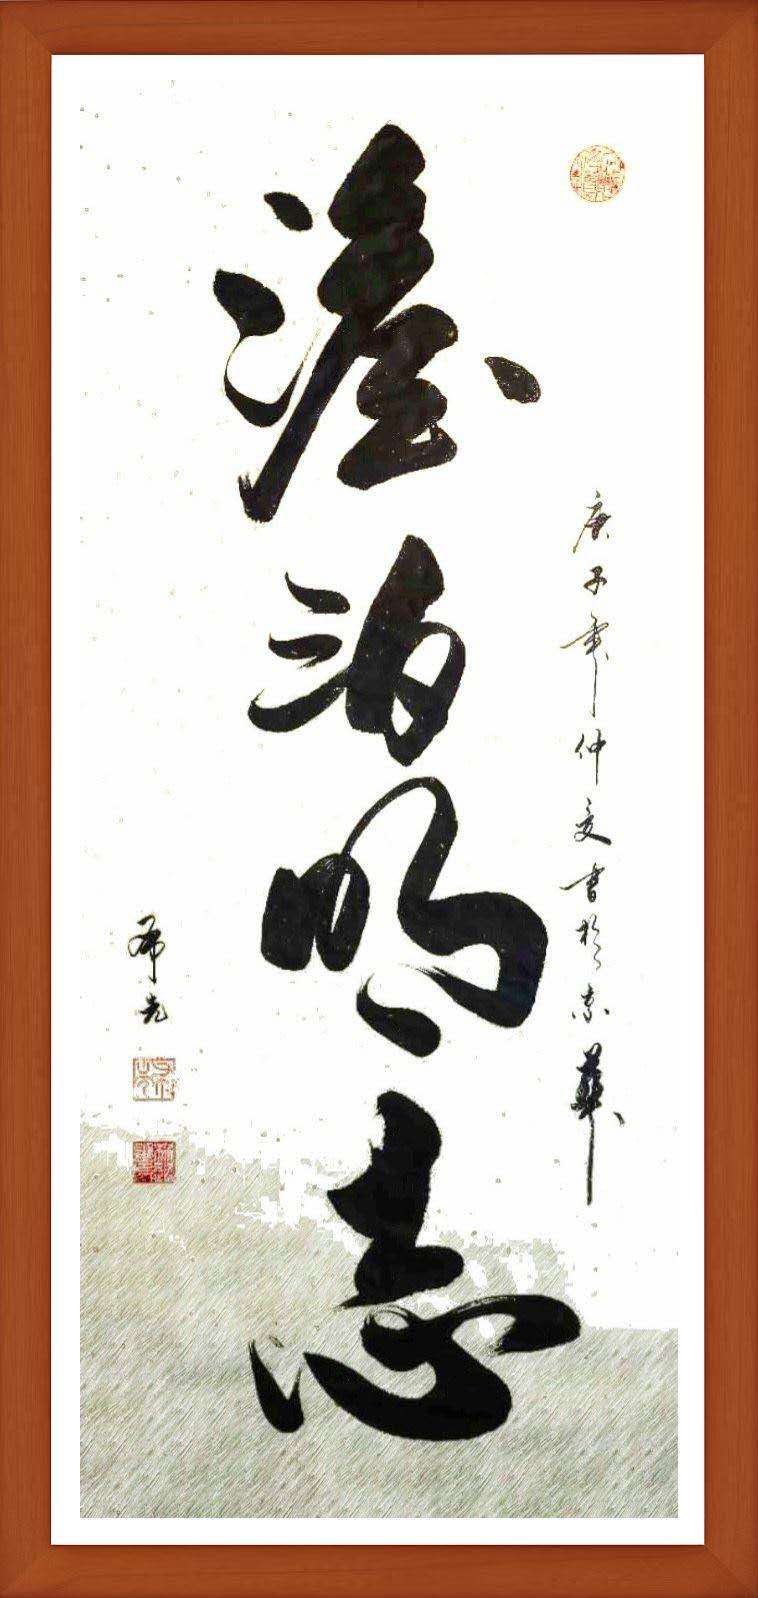 庚子年仲夏書於京華
澹泊明志
希